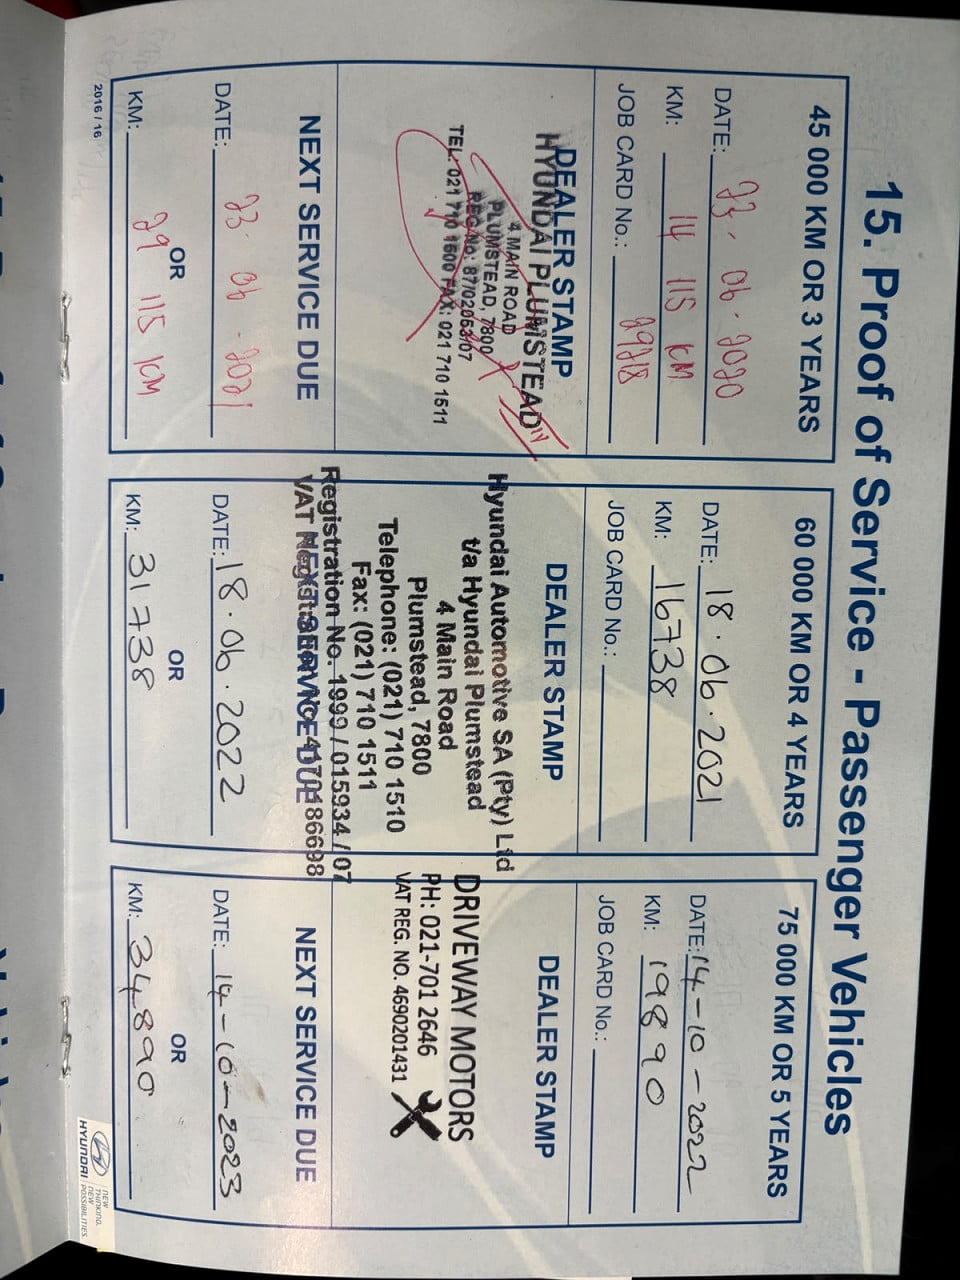 15. Proof of Service - Passenger Vehicles
45 000 KM OR 3 YEARS
DATE: 23 · 06 - 2020
KM: 14 115 KM
JOB CARD No.: 29218
DEALER STAMP
HYUNDAI PLUMSTEAD
4 MAIN ROAD
PLUMSTEAD, 7800
REG No: 87/02053/07
TEL: 021 710 1500 FAX: 021 710 1511
NEXT SERVICE DUE
DATE: 23 · 06 - 2021
OR
KM: 29 115 KM
2016 / 16
60 000 KM OR 4 YEARS
DATE: 18 · 06 · 2021
KM: 16738
JOB CARD No.:
DEALER STAMP
Hyundai Automotive SA (Pty) Ltd
t/a Hyundai Plumstead
4 Main Road
Plumstead, 7800
Telephone: (021) 710 1510
Fax: (021) 710 1511
Registration No. 1999 / 015934 / 07
VAT Registration No. 4170186698
NEXT SERVICE DUE
DATE: 18 · 06 · 2022
OR
KM: 31738
75 000 KM OR 5 YEARS
DATE: 14-10-2022
KM: 19890
JOB CARD No.:
DEALER STAMP
DRIVEWAY MOTORS
PH: 021-701 2646
VAT REG. NO. 4690201431
NEXT SERVICE DUE
DATE: 14-10-2023
OR
KM: 34890
HYUNDAI
NEW
THINKING.
NEW
POSSIBILITIES.